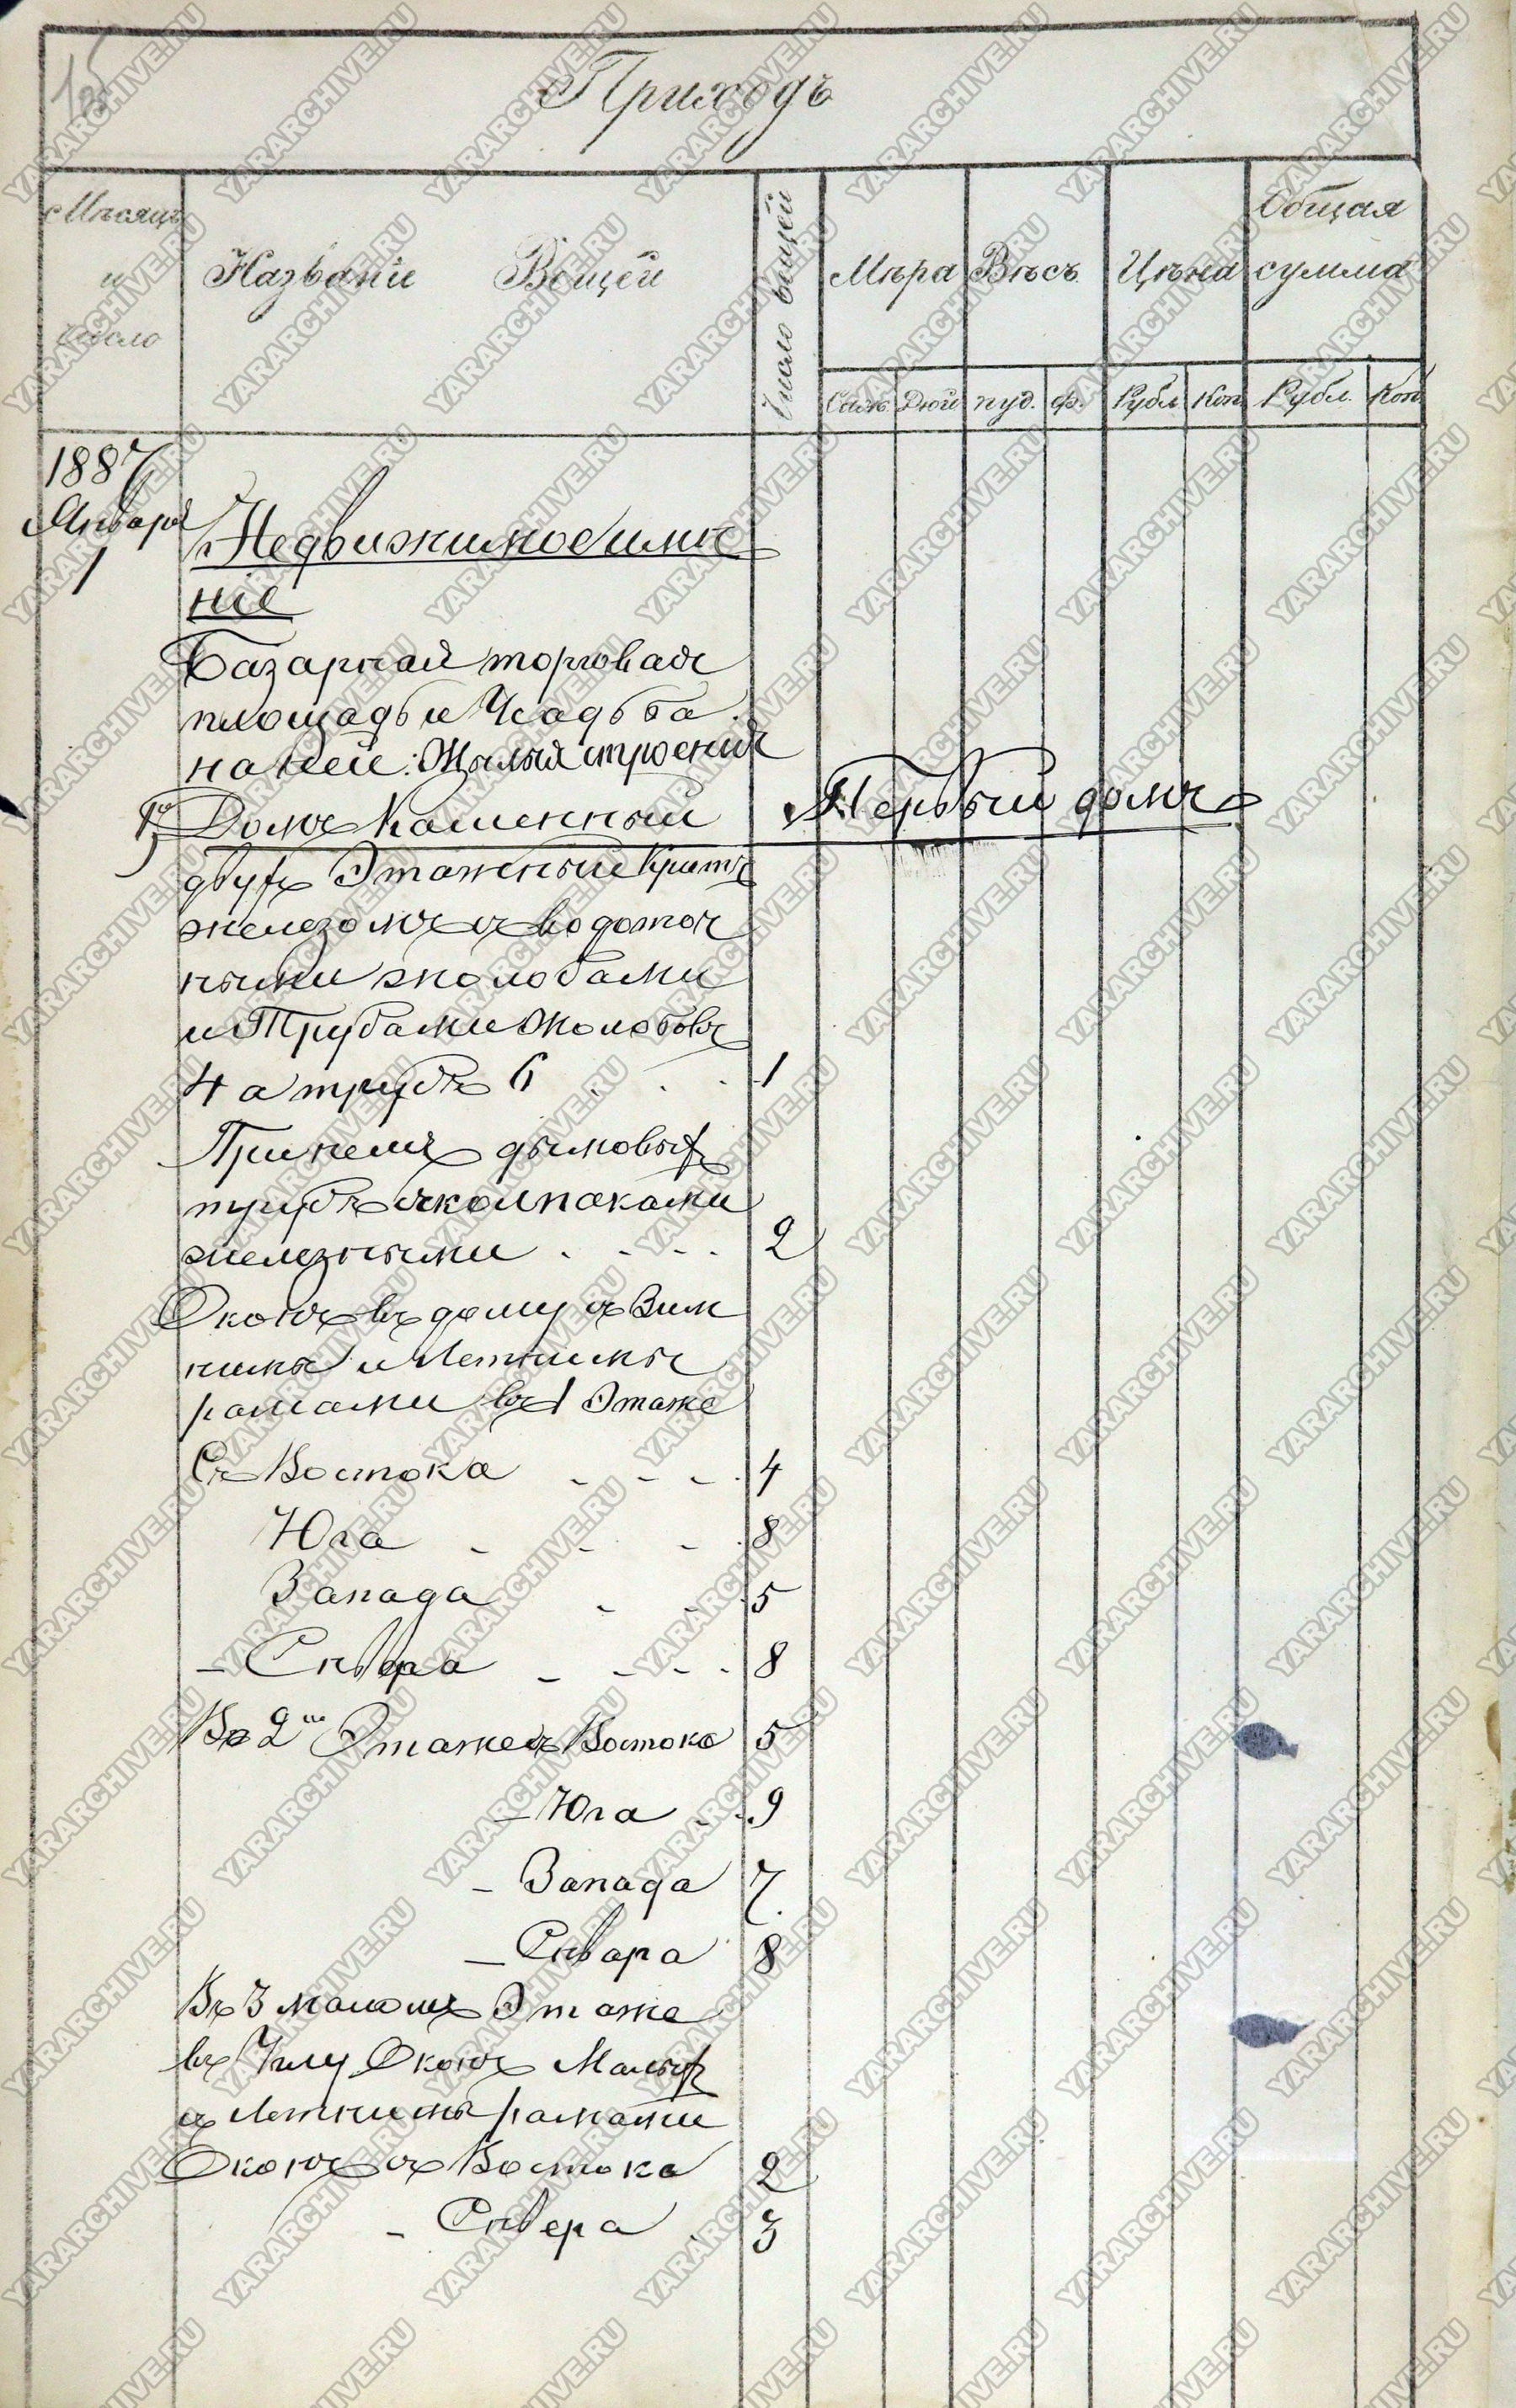 15
Приходъ
Мѣсяцъ
и
число
Названiе Вещей
Число вещей
Мѣра
Вѣсъ
Цѣна
Общая
сумма
Саж. Дюй. пуд. ф. Рубл. Коп. Рубл. Коп.
1887
Января
1
Недвижимое имѣ
нiе
Базарная торговая
площадь и Усадьба
на ней: Жилыя строения
Домъ Каменный
Первый домъ
двухъ Этажный крытъ
железомъ съ водоточ
ными жолобами
и Трубами жолобовъ
4 а трубъ 6 . . . 1
При немъ дымовыхъ
трубъ съ колпаками
железными . - - . 2
Оконъ въ дому съ Зим
ними и Летними
рамами въ 1 Этаже
Съ Востока - - - . 4
Юга - - - . 8
Запада - - . 5
- Сѣвера - - - . 8
Во 2м Этаже съ Востока 5
- Юга - . 9
- Запада 7.
- Сѣвера 8
Въ 3 маломъ Этаже
въ Углу Оконъ Малыхъ
съ Летними рамами
Оконъ съ Востока 2
- Сѣвера . 3
YARARCHIVE.RU